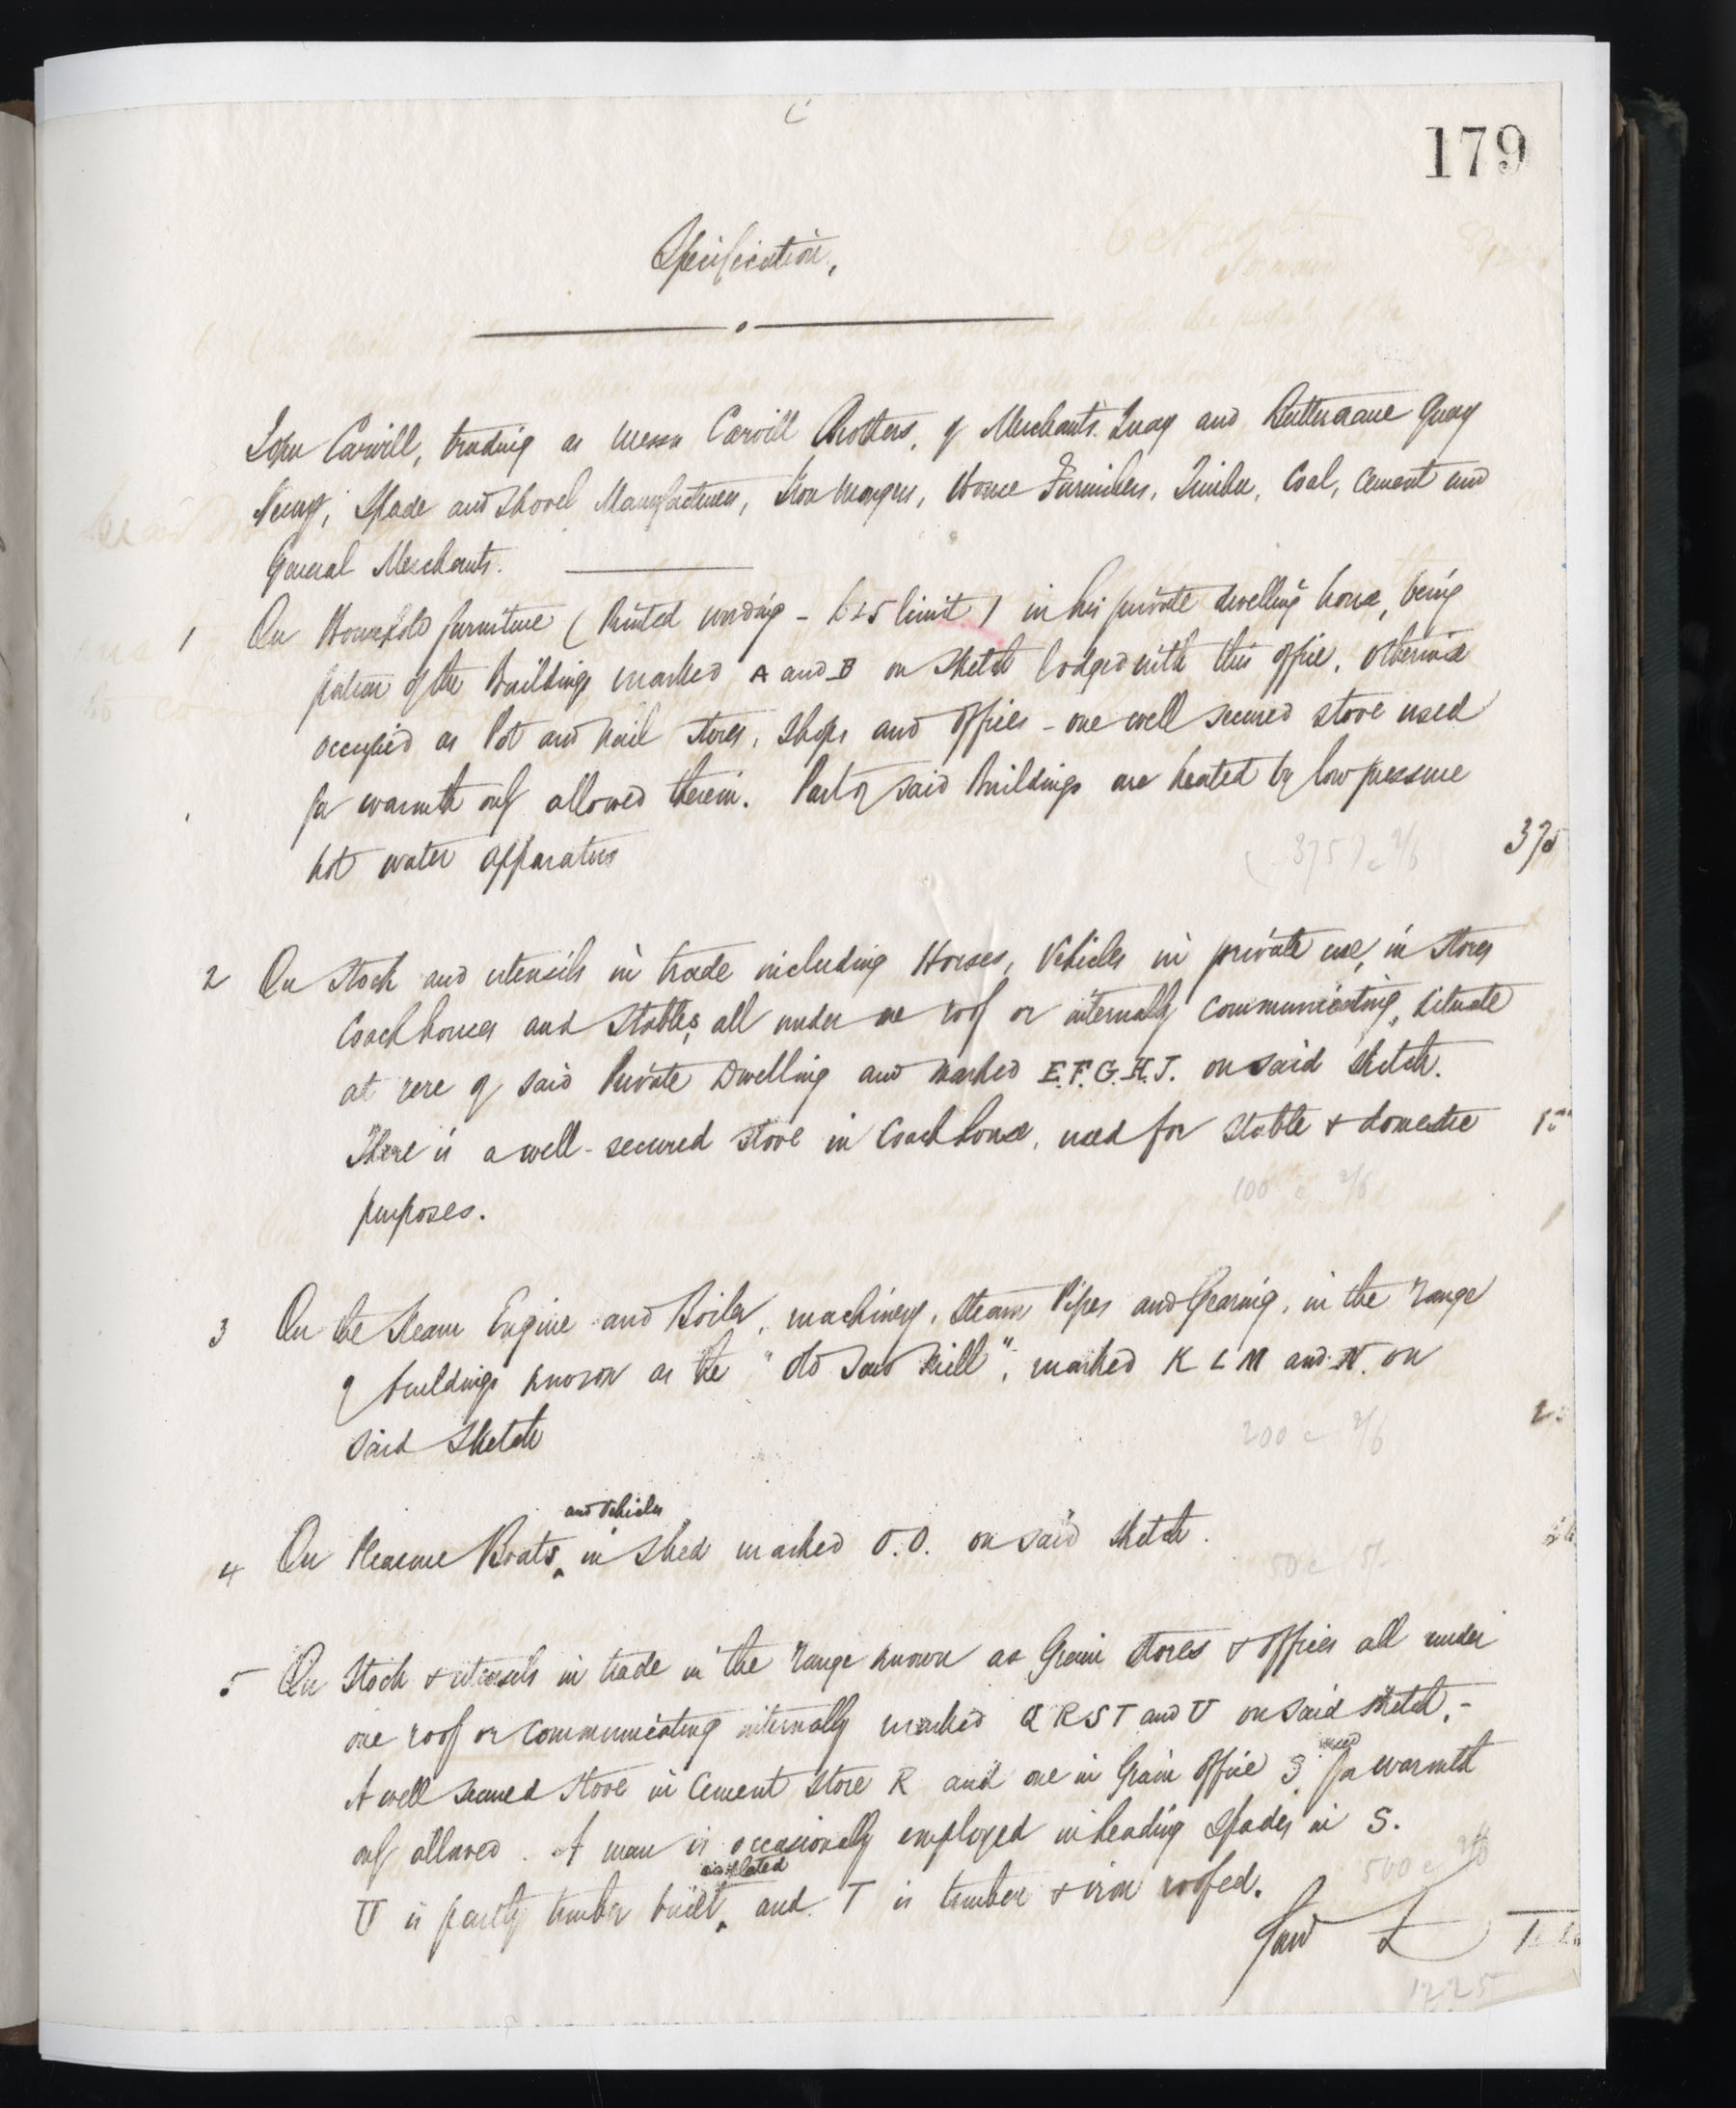 179
Specification,
John Carvill, trading as Messrs Carvill Brothers, of Merchants Quay and Buttercrane Quay
Newry, Spade and Shovel Manufacturers, Iron Mongers, House Furnishers, Timber, Coal, Cement and
General Merchants.
1 On Household furniture (Printed wording - £25 limit) in his private dwelling house, being
portion of the Buildings marked A and B on sketch lodged with this office, otherwise
occupied as Pot and Nail Stores, Shops and Offices - one well secured stove used
for warmth only allowed therein. Part of said Buildings are heated by low pressure
hot water apparatus
(375) c 2/6 375
2 On Stock and utensils in trade including Horses, Vehicles in private use, in Stores
Coach houses and Stables, all under one roof or internally communicating, situate
at rere of said Private Dwelling and marked E.F.G.H.J. on said sketch.
There is a well-secured stove in Coach house, used for stable & domestic
purposes.
100 c 2/6
3 On the Steam Engine and Boiler, machinery, Steam Pipes and Gearing, in the range
of buildings known as the "Old Saw Mill", marked K L M and N. on
said Sketch
200 c 2/6
4 On Pleasure Boats and Vehicles in Shed marked O.O. on said sketch.
50 c 5/-
5 On Stock & utensils in trade in the range known as Grain Stores & Offices all under
one roof or communicating internally marked Q R S T and U on said sketch. -
A well secured Stove in Cement Store R and one in Grain Office S used for warmth
only allowed. A man is occasionally employed in heading Spades in S.
U is partly timber built and slated, and T is timber & iron roofed.
500 c 2/6
Ford £
1225